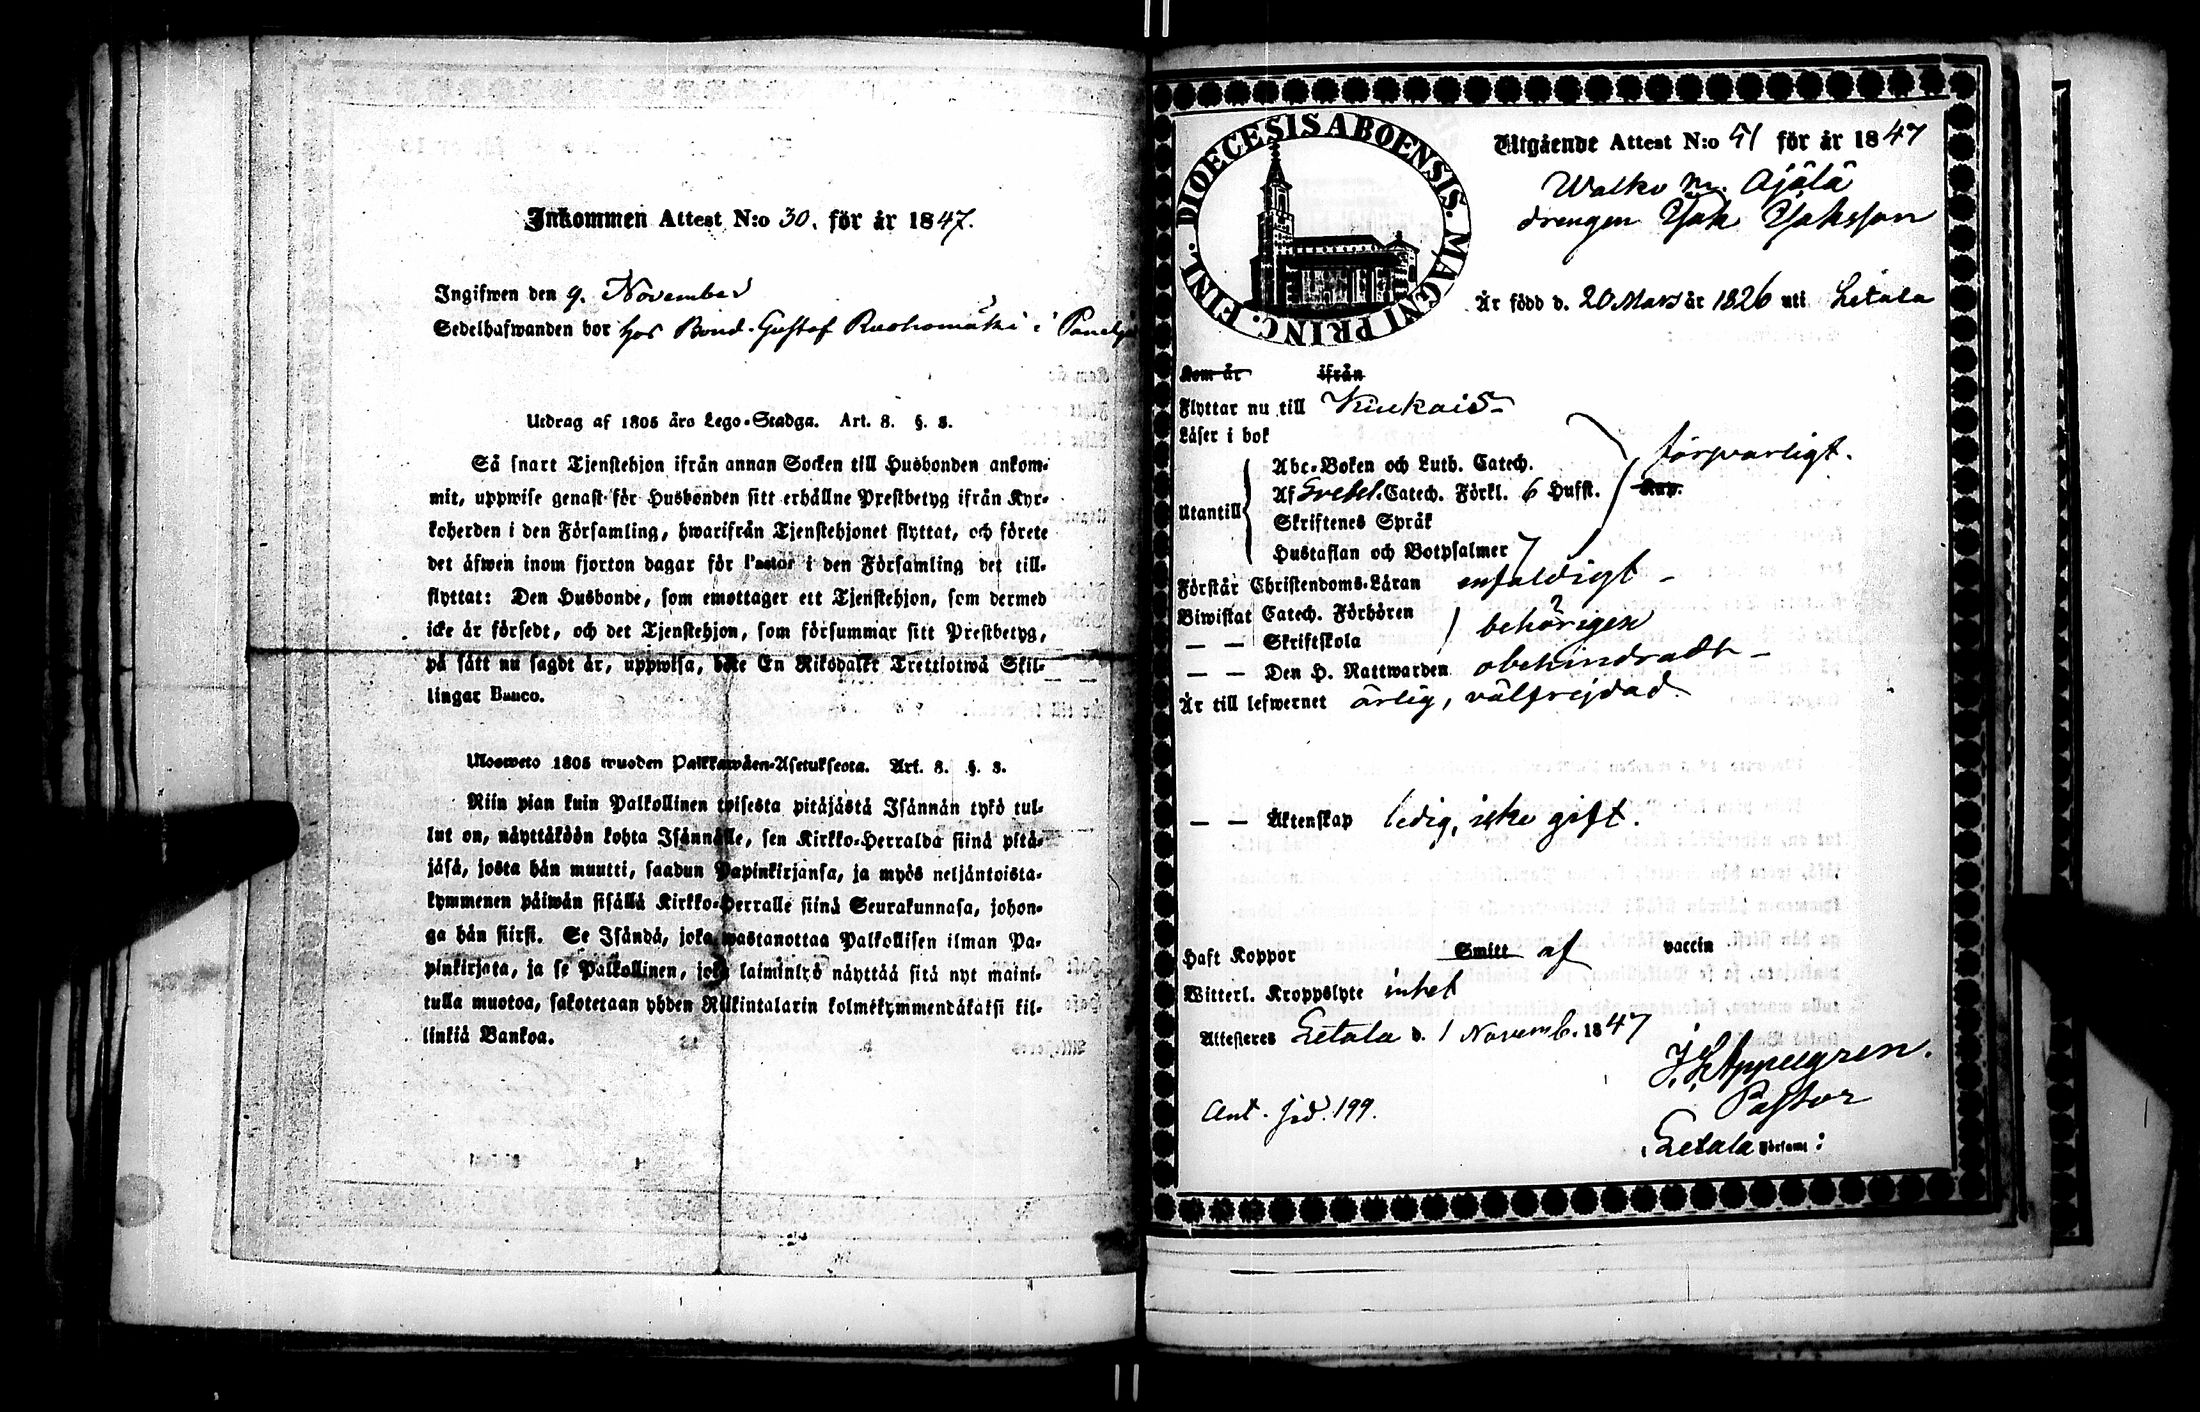 Inkommen Attest N:o 30. för år 1847.
Ingifwen den 9. November
Sedelhafwanden bor hos Bond. Gustaf Ruohomäki i
Utdrag af 1805 års Lego-Stadga. Art. 8. §. 3.
Så snart Tjenstehjon ifrån annan Socken till Husbonden ankom-
mit, uppwise genast för Husbonden sitt erhållne Prestbetyg ifrån Kyr-
koherden i den Församling, hwarifrån Tjenstehjonet flyttat, och förete
det äfwen inom fjorton dagar för Pastor i den Församling det till-
flyttat: Den Husbonde, som emottager ett Tjenstehjon, som dermed
icke är försedt, och det Tjenstehjon, som försummar sitt Prestbetyg,
på sätt nu sagdt är, uppwisa, böte En Riksdaler Trettiotwå Skil-
lingar Banco.
Ulosweto 1805 wuoden Palkkawäen-Asetuksesta. Art. 8. §. 3.
Niin pian kuin Palkollinen toisesta pitäjästä Isännän tykö tul-
lut on, näyttäköön kohta Isännälle, sen Kirkko-Herralda siinä pitä-
jäsä, josta hän muutti, saadun Papinkirjansa, ja myös neljäntoista-
kymmenen päiwän sisällä Kirkko-Herralle siinä Seurakunnasa, johon-
ga hän siirsi. Se Isändä, joka wastanottaa Palkollisen ilman Pa-
pinkirjata, ja se Palkollinen, joka laiminlyö näyttää sitä nyt maini-
tulla muotoa, sakotetaan yhden Riikintalarin kolmekymmendäkaksi kil-
linkiä Bankoa.
DIOECESIS ABOENSIS. MAGNI PRINC. FINL.
Utgående Attest N:o 51 för år 1847
Walko m. Ajälä
drengen Isak Isaksson
Är född d. 20 Mars år 1826 uti Letala
Kom år ifrån
Flyttar nu till Kiukais
Läser i bok
förswarligt.
Abc-Boken och Luth. Catech.
Utantill
Af Svebel. Catech. Förkl. 6 Hufst. Kap.
Skriftenes Språk
Hustaflan och Botpsalmer
Förstår Christendoms-Läran enfaldigt
Biwistat Catech. Förhören
— — Skriftskola behörigen
— — Den H. Nattwarden obehindradt
Är till lefwernet ärlig, välfrejdad
— — Äktenskap ledig, icke gift.
Haft Koppor Smitt af vaccin
Witterl. Kroppslyte intet
Attesteres Letala d. 1 Novemb. 1847
J. E. Appelgren.
Pastor
Ant. sid. 199.
Letala Församl: